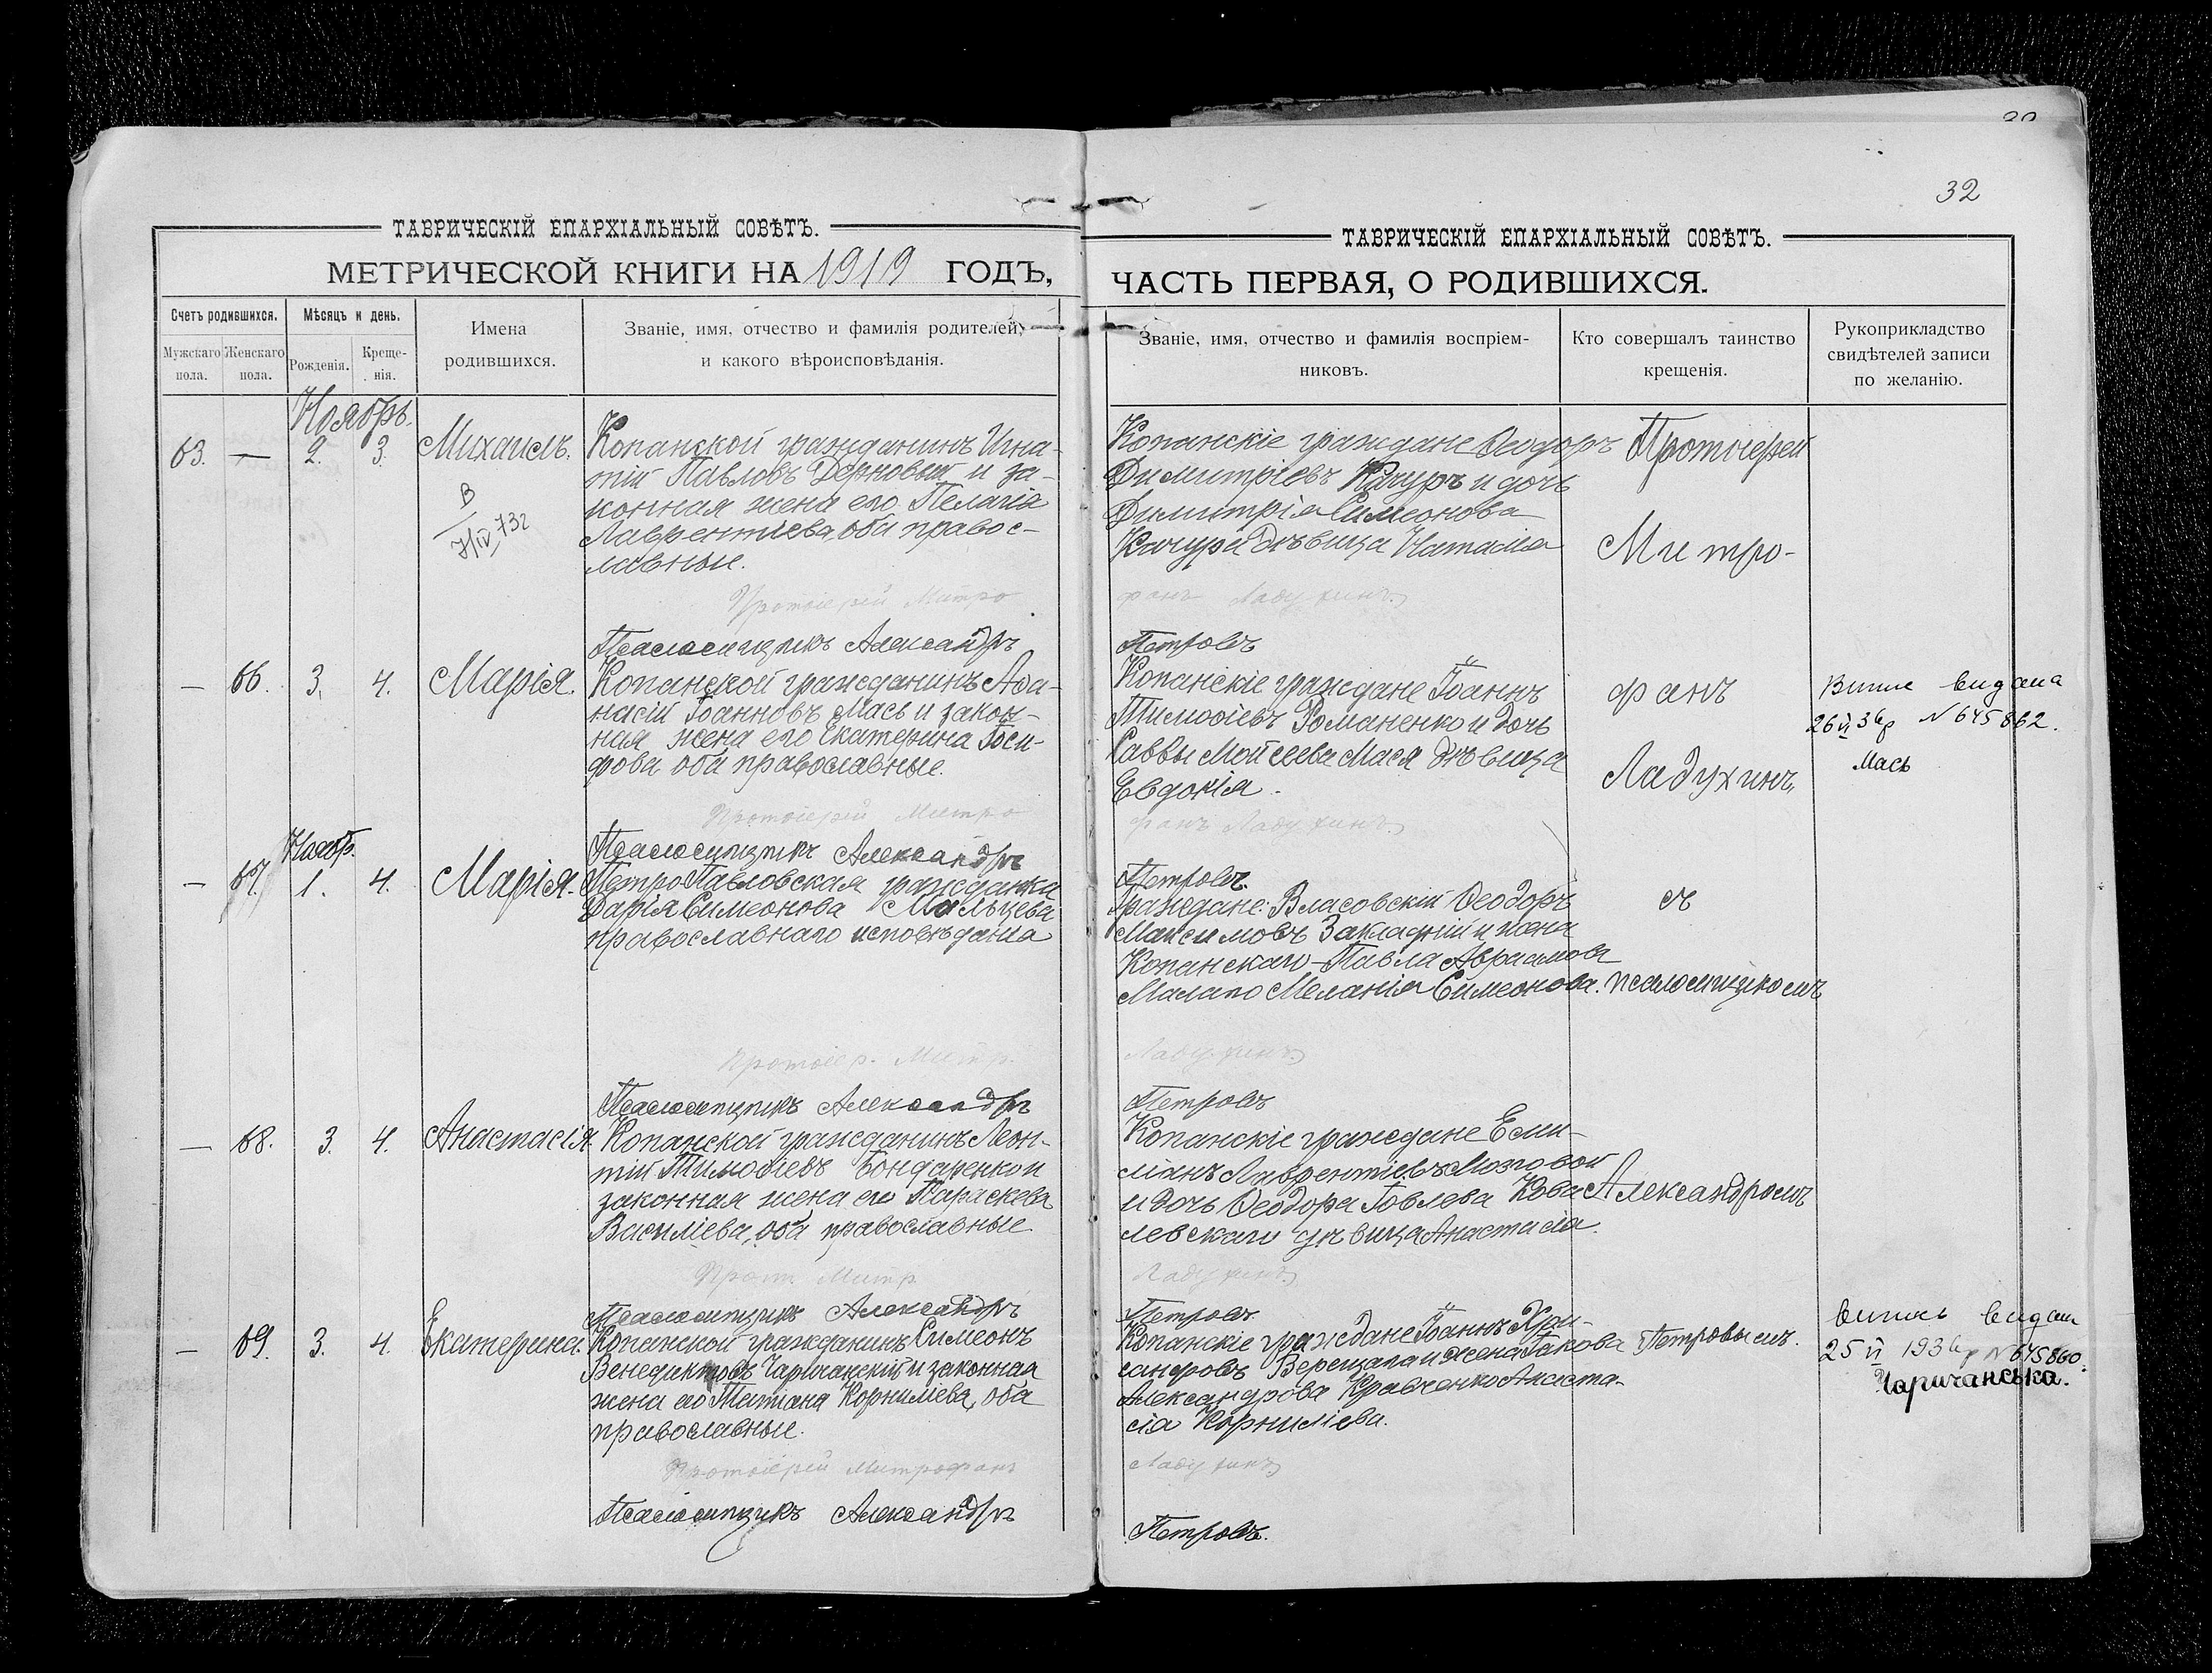 32
ТАВРИЧЕСКІЙ ЕПАРХІАЛЬНЫЙ СОВѢТЪ.
МЕТРИЧЕСКОЙ КНИГИ НА 1919 ГОДЪ,
Счетъ родившихся.
Мужскаго пола.
Женскаго пола.
Мѣсяцъ и день.
Рожденія.
Креще-
нія.
Имена
родившихся.
Званіе, имя, отчество и фамилія родителей,
и какого вѣроисповѣданія.
Ноябрь.
63. — 2. 3. Михаилъ.
Копанской гражданинъ Игна-
тій Павловъ Дерновый и за-
конная жена его Пелагія
Лаврентіева, оба правос-
лавные.
Протоіерей Митро
Псаломщикъ Александръ
— 66. 3. 4. Марія.
Копанской гражданинъ Аѳа-
насій Іоанновъ Мась и закон-
ная жена его Екатерина Іоси-
фова оба православные.
Протоіерей Митро
Псаломщикъ Александръ
Ноябр.
— 67. 1. 4. Марія.
ПетроПавловская гражданка
Дарія Симеонова Мальцева
православнаго исповѣданія
Протоіер. Митр.
Псаломщикъ Александръ
— 68. 3. 4. Анастасія.
Копанской гражданинъ Леон-
тій Тимоѳіевъ Бондаренко и
законная жена его Параскева
Василіева, оба православные
Прот Митр
Псаломщикъ Александръ
— 69. 3. 4. Екатерина.
Копанской гражданинъ Симеонъ
Венедиктовъ Чаричанскій и законная
жена его Татіана Корниліева, оба
православные.
Протоіерей Митрофанъ
Псаломщикъ Александръ
ТАВРИЧЕСКІЙ ЕПАРХІАЛЬНЫЙ СОВѢТЪ.
ЧАСТЬ ПЕРВАЯ, О РОДИВШИХСЯ.
Званіе, имя, отчество и фамилія воспріем-
никовъ.
Кто совершалъ таинство
крещенія.
Рукоприкладство
свидѣтелей записи
по желанію.
Копанскіе граждане Ѳеодоръ
Димитріевъ Качуръ и дочь
Димитрія Симеонова
Качура дѣвица Наталія
фанъ Ладухинъ
Петровъ
Копанскіе граждане Іоаннъ
Тимоѳіевъ Романенко и дочь
Саввы Мойсеева Мася дѣвица
Евдокія.
фанъ Ладухинъ
Петровъ.
Граждане: Власовскій Ѳеодоръ
Максимовъ и жена
Копанскаго Павла Авраамова
Малаго Меланія Симеонова.
Ладухинъ
Петровъ
Копанскіе граждане Еми-
ліанъ Лаврентіевъ Мозговой
и дочь Ѳеодора Іовлева Кова
левскаго дѣвица Анастасія.
Ладухинъ
Петровъ.
Копанскіе граждане Іоаннъ Хри-
санфовъ Верещага и жена Іакова
Александрова Кравченко Анаста-
сія Корниліева.
Ладухинъ
Петровъ.
Протоіерей
Митро-
фанъ
Ладухинъ,
съ
псаломщикомъ
Александромъ
Петровымъ.
видана
N 645862.
Мась
видан
25 VI 1936р N 645860.
Чаричанська.